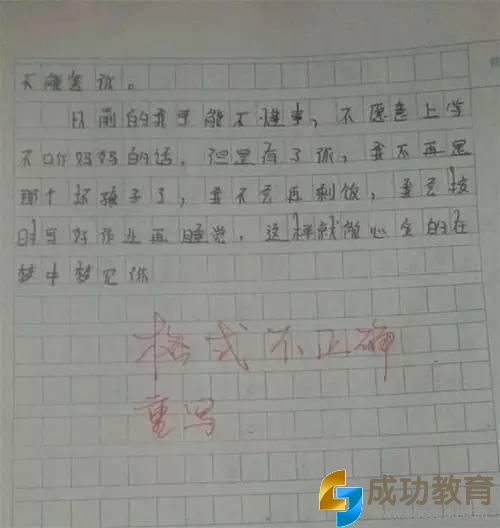 不能害你。
以前的我可能不懂事，不愿意上学
不听妈妈的话，但是有了你，我不再是
那个坏孩子了，我不会再剩饭，我会按
时写好作业再睡觉，这样就能心安的在
梦中梦见你
格式不正确
重写
成功教育